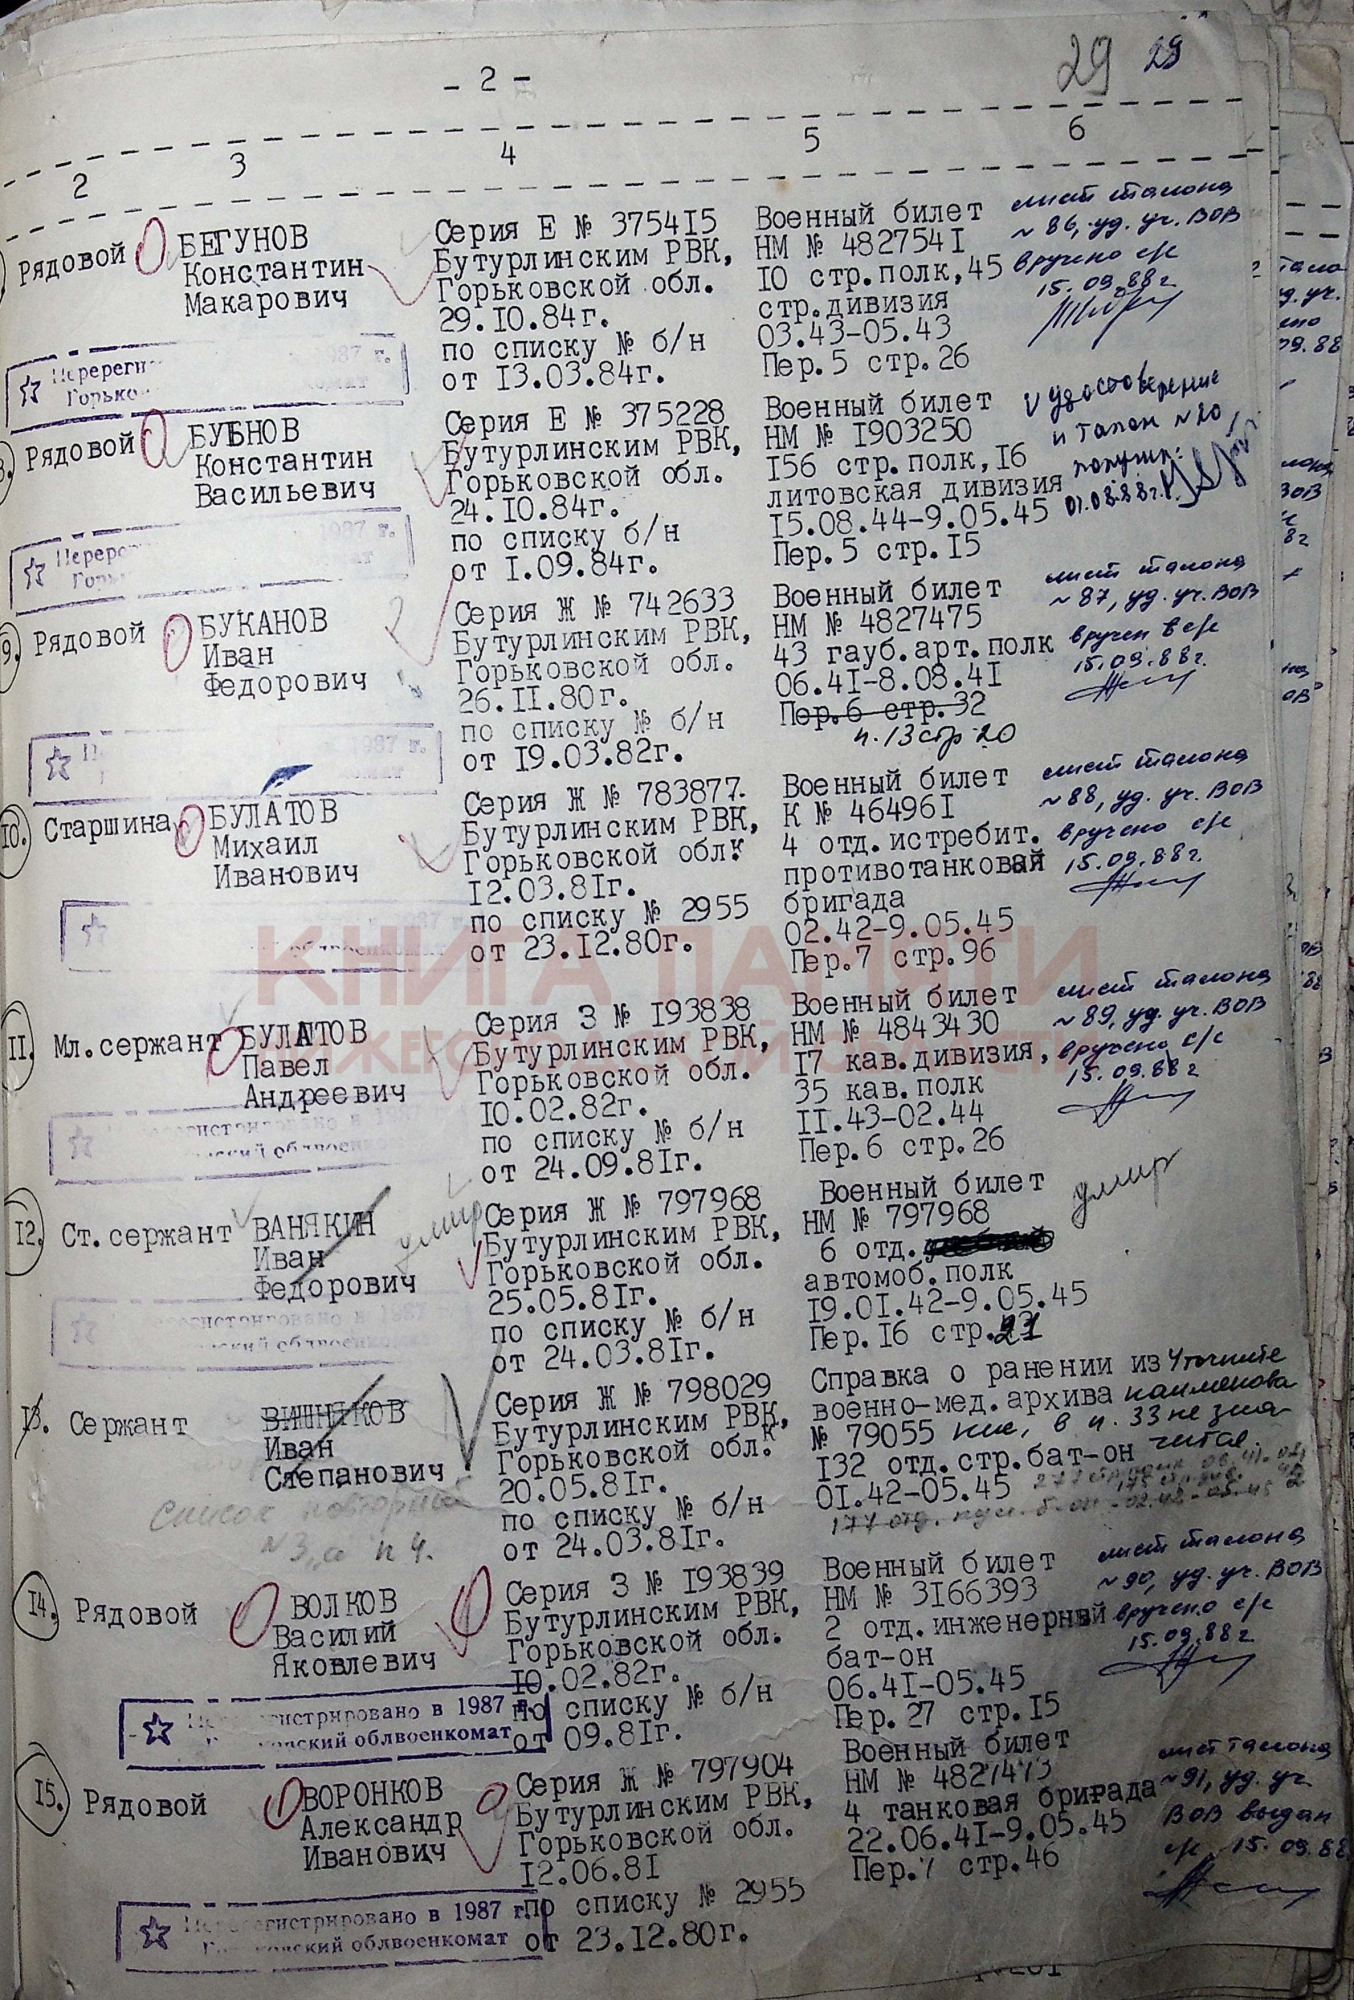 - 2 -
29 29
2 3 4 5 6
Рядовой
БЕГУНОВ
Константин
Макарович
Серия Е № 375415
Бутурлинским РВК,
Горьковской обл.
29.10.84г.
по списку № б/н
от 13.03.84г.
Военный билет
НМ № 4827541
10 стр.полк,45
стр.дивизия
03.43-05.43
Пер.5 стр.26
лист талона
~ 86, уд. уч. ВОВ
вручено с/с
15.09.88г.
1987 г.
Рядовой
БУБНОВ
Константин
Васильевич
Серия Е № 375228
Бутурлинским РВК,
Горьковской обл.
24.10.84г.
по списку б/н
от 1.09.84г.
Военный билет
НМ № 1903250
156 стр.полк,16
литовская дивизия
15.08.44-9.05.45
Пер.5 стр.15
Удостоверение
и талон №20,
получил:
01.08.88г.
1987 г.
9. Рядовой
БУКАНОВ
Иван
Федорович
Серия Ж № 742633
Бутурлинским РВК,
Горьковской обл.
26.11.80г.
по списку № б/н
от 19.03.82г.
Военный билет
НМ № 4827475
43 гауб.арт.полк
06.41-8.08.41
Пер.6 стр.32
п.13 стр 20
лист талона
~ 87, уд. уч. ВОВ
вручен в с/с
15.09.88г.
1987 г.
10. Старшина
БУЛАТОВ
Михаил
Иванович
Серия Ж № 783877
Бутурлинским РВК,
Горьковской обл.
12.03.81г.
по списку № 2955
от 23.12.80г.
Военный билет
К № 464961
4 отд.истребит.
противотанковай
бригада
02.42-9.05.45
Пер.7 стр.96
лист талона
~88, уд. уч. ВОВ
вручено с/с
15.09.88г.
1987 г.
КНИГА ПАМЯТИ
11. Мл.сержант
БУЛАТОВ
Павел
Андреевич
Серия З № 193838
Бутурлинским РВК,
Горьковской обл.
10.02.82г.
по списку № б/н
от 24.09.81г.
Военный билет
НМ № 4843430
17 кав.дивизия,
35 кав.полк
11.43-02.44
Пер.6 стр.26
лист талона
~89, уд. уч. ВОВ
вручено с/с
15.09.88г
12. Ст.сержант
ВАНЯКИН
Иван
Федорович
умир
Серия Ж № 797968
Бутурлинским РВК,
Горьковской обл.
25.05.81г.
по списку № б/н
от 24.03.81г.
Военный билет
НМ № 797968
6 отд.
автомоб.полк
19.01.42-9.05.45
Пер.16 стр.21
умир
13. Сержант
ВИШНЯКОВ
Иван
Степанович
Список повторный
№3, а п 4.
Серия Ж № 798029
Бутурлинским РВК,
Горьковской обл.
20.05.81г.
по списку № б/н
от 24.03.81г.
Справка о ранении из
военно-мед.архива
№ 79055
132 отд.стр.бат-он
01.42-05.45
Уточните
наименова
ние, в п. 33 не зна-
чится.
14. Рядовой
ВОЛКОВ
Василий
Яковлевич
Серия З № 193839
Бутурлинским РВК,
Горьковской обл.
10.02.82г.
по списку № б/н
от 09.81г.
Военный билет
НМ № 3166393
2 отд.инженерный
бат-он
06.41-05.45
Пер.27 стр.15
лист талона
~90, уд. уч. ВОВ
вручено с/с
15.09.88г
Перерегистрировано в 1987 г.
Горьковский облвоенкомат
15. Рядовой
ВОРОНКОВ
Александр
Иванович
Серия Ж № 797904
Бутурлинским РВК,
Горьковской обл.
12.06.81
по списку № 2955
от 23.12.80г.
Военный билет
НМ № 4827473
4 танковая бригада
22.06.41-9.05.45
Пер.7 стр.46
лист талона
~91, уд. уч.
ВОВ выдан
с/с 15.09.88
Перерегистрировано в 1987 г.
Горьковский облвоенкомат